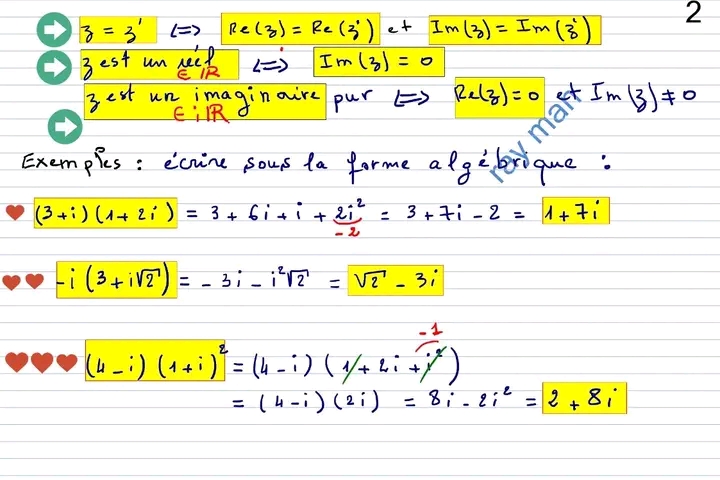 2
z = z' ⟺ Re(z) = Re(z') et Im(z) = Im(z')
z est un réel ⟺ Im(z) = 0
∈ ℝ
z est un imaginaire pur ⟺ Re(z) = 0 et Im(z) ≠ 0
∈ iℝ
ray man
Exemples : écrire sous la forme algébrique :
(3+i)(1+2i) = 3 + 6i + i + 2i² = 3 + 7i - 2 = 1 + 7i
-2
-i(3+i√2) = -3i - i²√2 = √2 - 3i
-1
(4-i)(1+i)² = (4-i)(1 + 2i + i²)
= (4-i)(2i) = 8i - 2i² = 2 + 8i